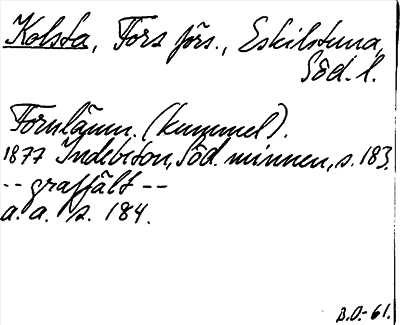 Kolsta, Fors förs., Eskilstuna,
Söd. l.
Fornlämn. (kummel).
1877 Indebetou, Söd. minnen, s. 183.
-- graffält --
a. a. s. 184.
B.O.-61.